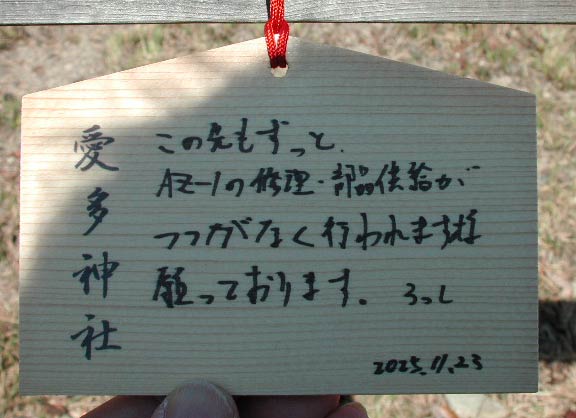 愛多神社
この先もずっと、
AZ-1の修理・部品供給が
つつがなく行われます様
願っております。 ろっし
2025.11.23